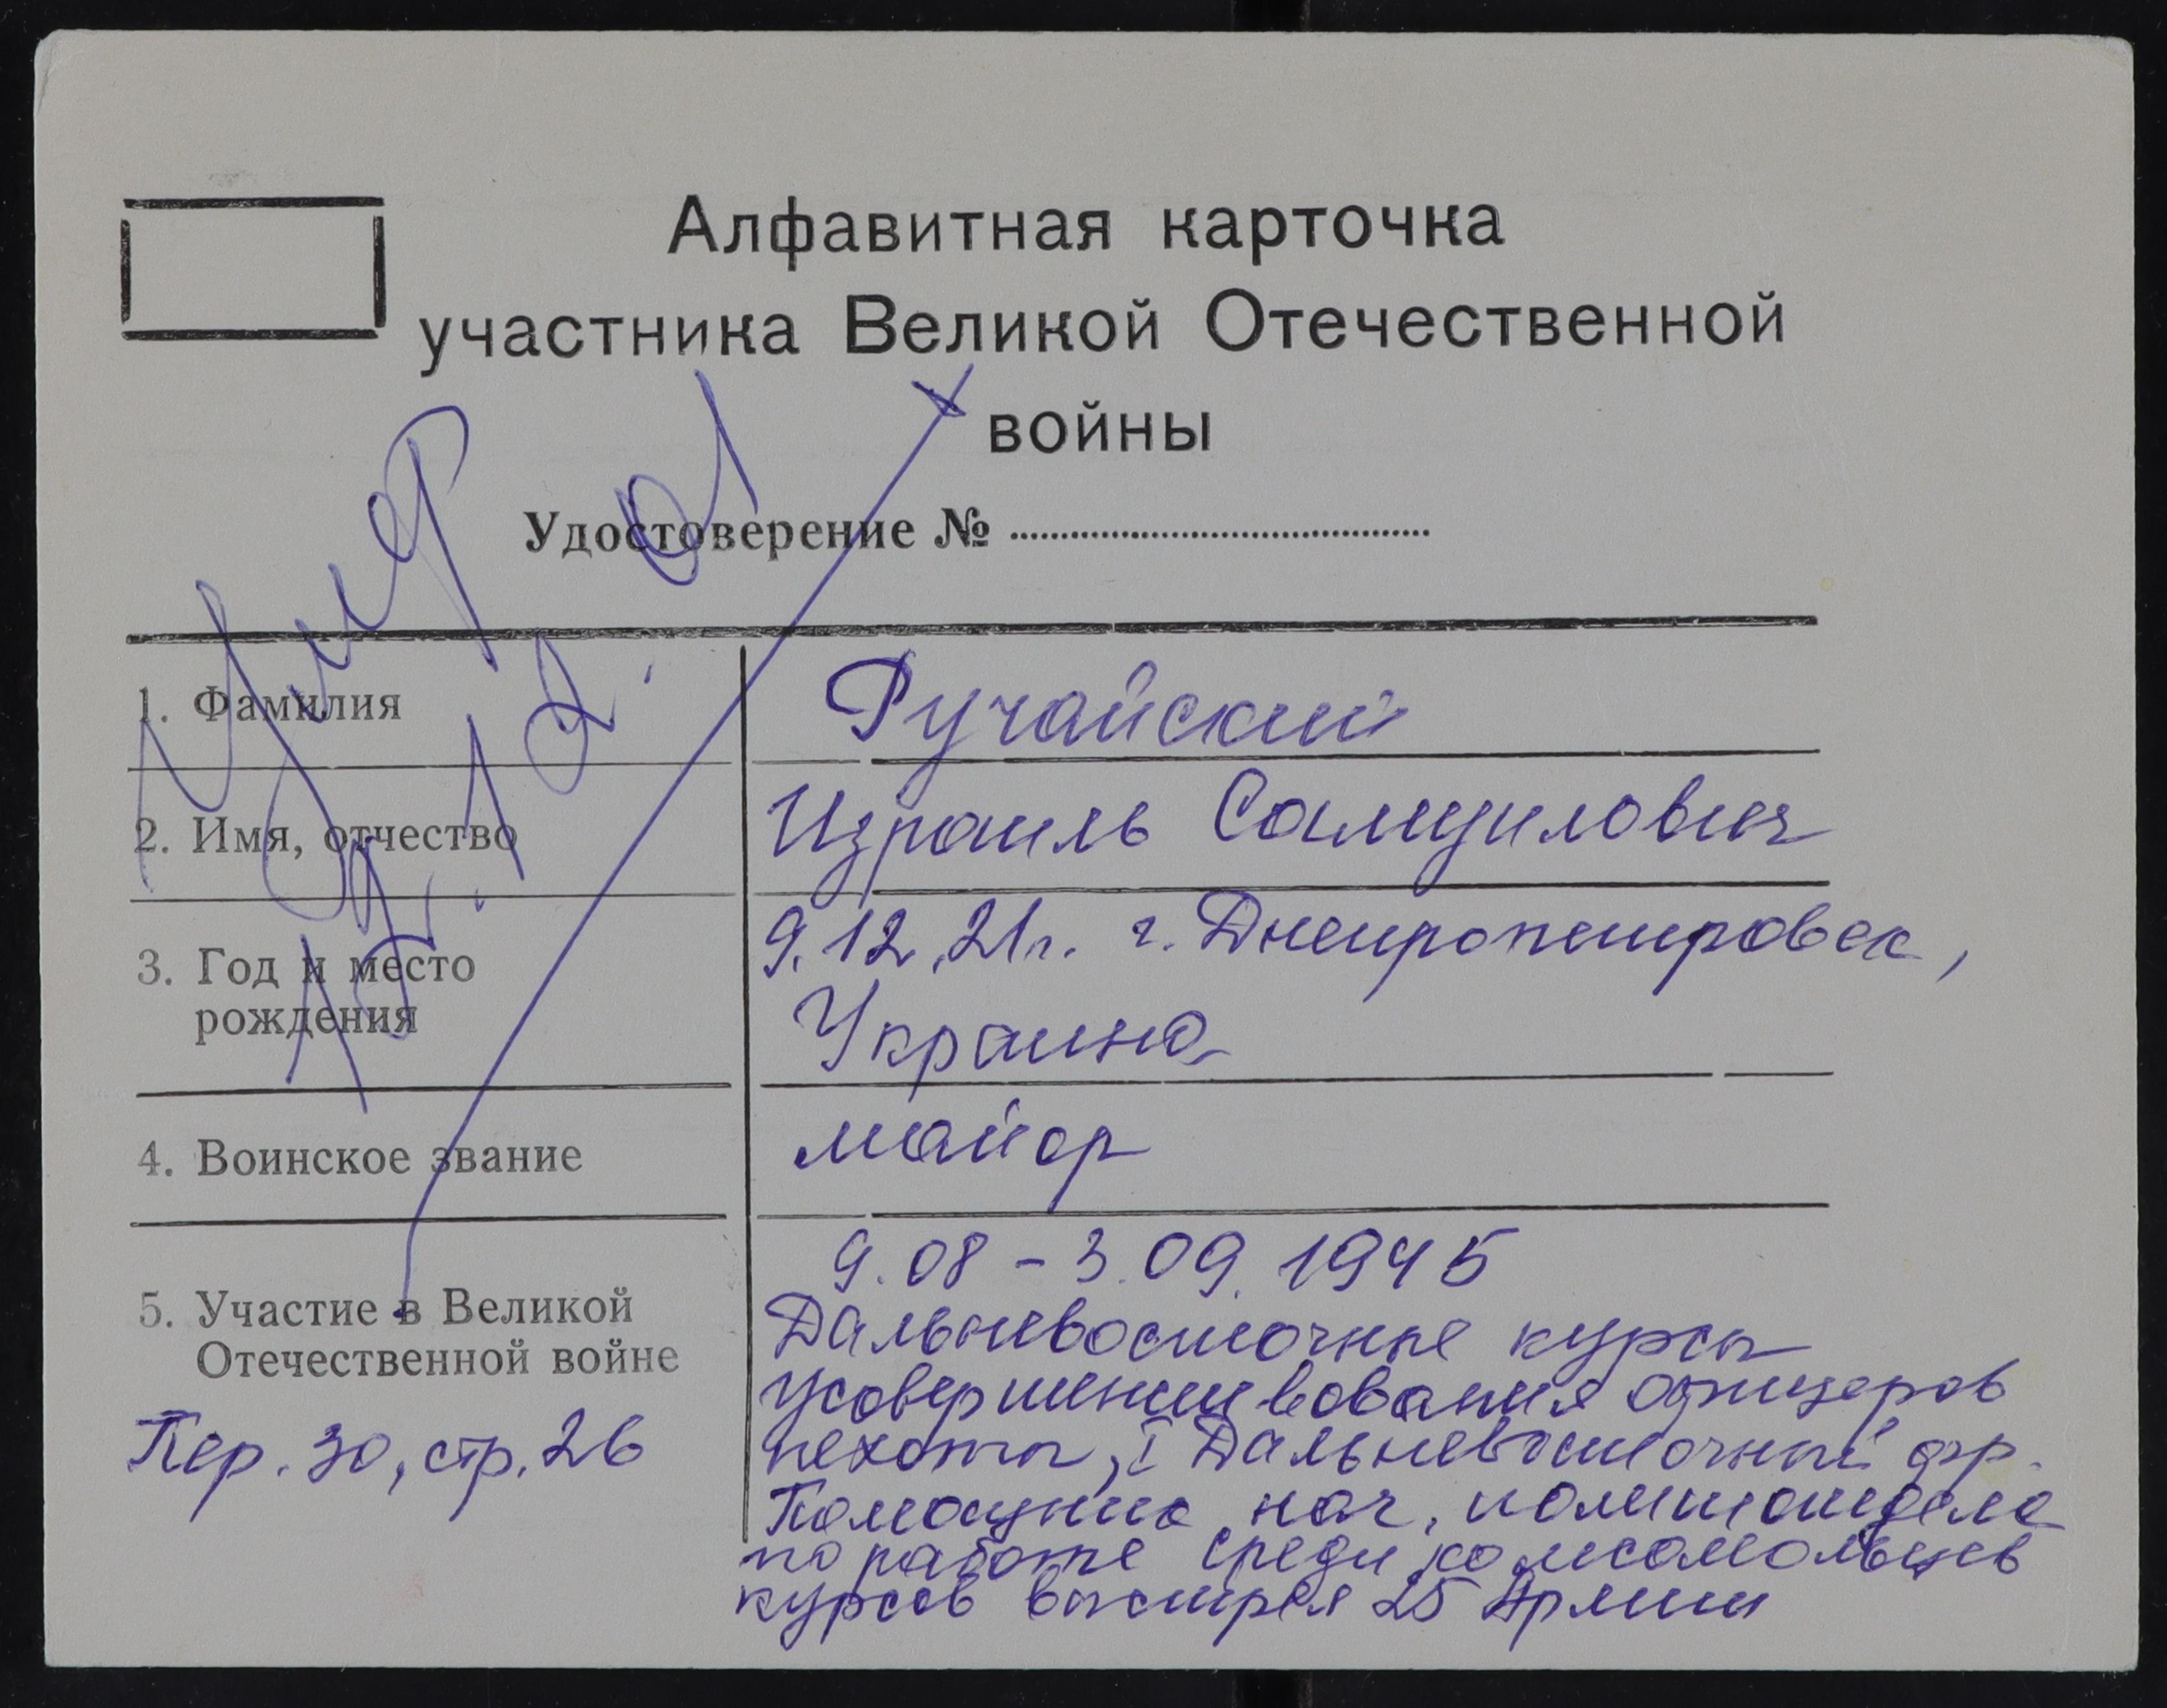 Алфавитная карточка
участника Великой Отечественной
войны
Удостоверение №
1. Фамилия
Ручайский
2. Имя, отчество
Израиль Самуилович
3. Год и место
рождения
9.12.21г. г. Днепропетровск,
Украина
4. Воинское звание
майор
5. Участие в Великой
Отечественной войне
Пер. 30, стр. 26
9.08 - 3.09.1945
Дальневосточные курсы
усовершенствования офицеров
пехоты, I Дальневосточный фр.
Помощник нач. политотдела
по работе среди комсомольцев
курсов выстрел 25 Армии